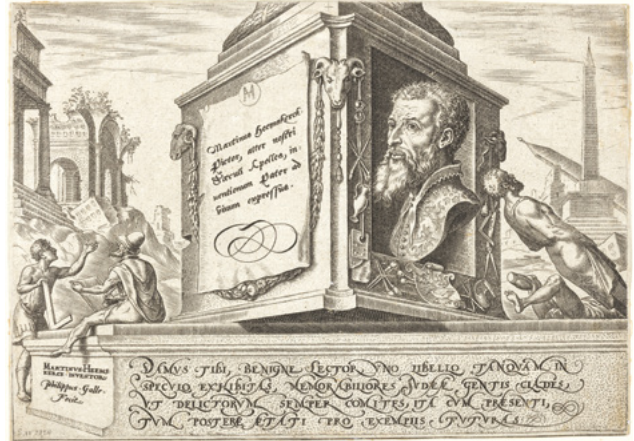 Martinus Heemskerck
Pictor, alter nostri
Sæculi Apelles, in-
uentionum Pater ad
viuum expressus.
MARTINVS HEEMS
KERCK INVENTOR.
Philippus Galle
Fecit.
DAMVS TIBI, BENIGNE LECTOR, VNO LIBELLO, TANQVAM IN
SPECVLO EXHIBITAS, MEMORABILIORES IVDEÆ GENTIS CLADES,
VT DELICTORVM SEMPER COMITES, ITA CVM PRÆSENTI,
TVM POSTERÆ ÆTATI PRO EXEMPLIS FVTVRAS.